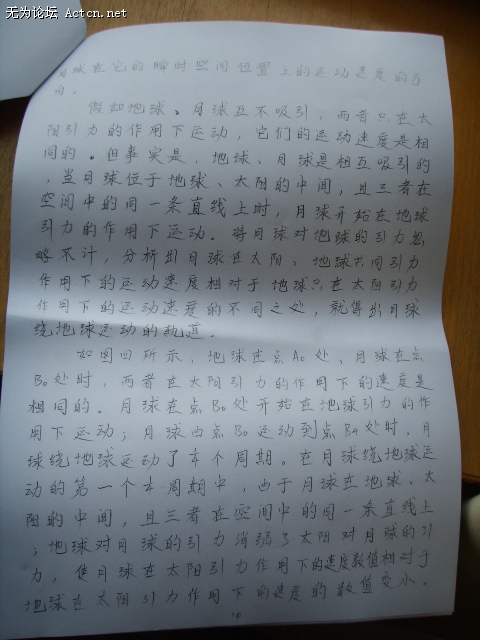 无为论坛 Actcn.net
月球在它的瞬时空间位置上的运动速度的方
向。
假如地球、月球互不吸引，两者只在太
阳引力的作用下运动，它们的运动速度是相
同的。但事实是，地球、月球是相互吸引的
，当月球位于地球、太阳的中间，且三者在
空间中的同一条直线上时，月球开始在地球
引力的作用下运动。将月球对地球的引力忽
略不计，分析出月球在太阳、地球共同引力
作用下的运动速度相对于地球只在太阳引力
作用下的运动速度的不同之处，就得出月球
绕地球运动的轨道。
如图四所示，地球在点A0处、月球在点
B0处时，两者在太阳引力的作用下的速度是
相同的。月球在点B0处开始在地球引力的作
用下运动；月球由点B0运动到点B4处时，月
球绕地球运动了半个周期。在月球绕地球运
动的第一个半周期中，由于月球在地球、太
阳的中间，且三者在空间中的同一条直线上
；地球对月球的引力消弱了太阳对月球的引
力，使月球在太阳引力作用下的速度数值相对于
地球在太阳引力作用下的速度的数值变小。